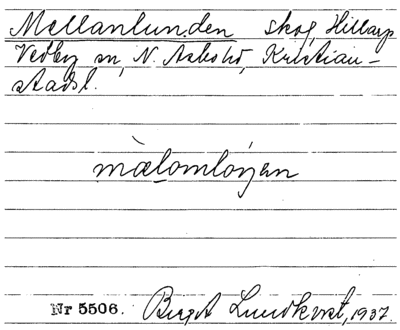 Mellanlunden skog, Hillarp
Vedby sn, N. Åsbohd, Kristian-
stads l.
Nr 5506. Birgit Lundkvist, 1937.